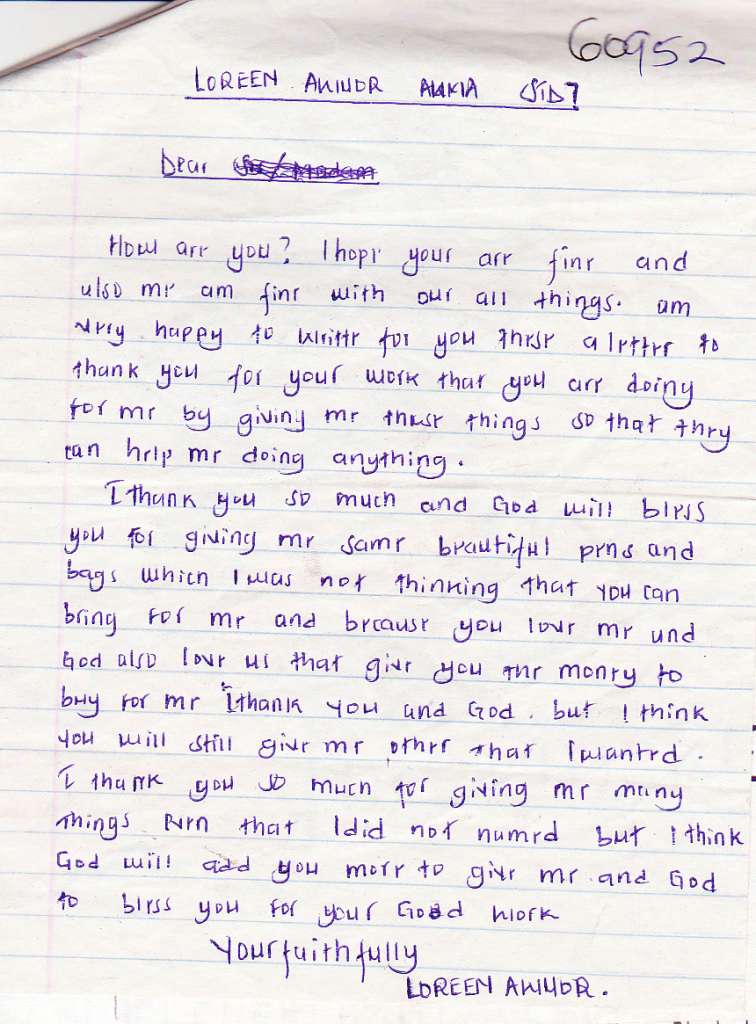 60952
LOREEN AKINOR AKKIA STD 7
Dear
How are you? I hope your are fine and
also me am fine with our all things. am
very happy to writte for you these a letter to
thank you for your work that you are doing
for me by giving me these things so that they
can help me doing anything.
I thank you so much and God will bless
you for giving me same beautiful pens and
bags which I was not thinking that you can
bring for me and because you love me and
God also love us that give you the money to
buy for me I thank you and God. but I think
you will still give me other that I wanted.
I thank you so much for giving me many
things even that I did not named but I think
God will add you more to give me and God
to bless you for your Good work
Your faithfully
LOREEN